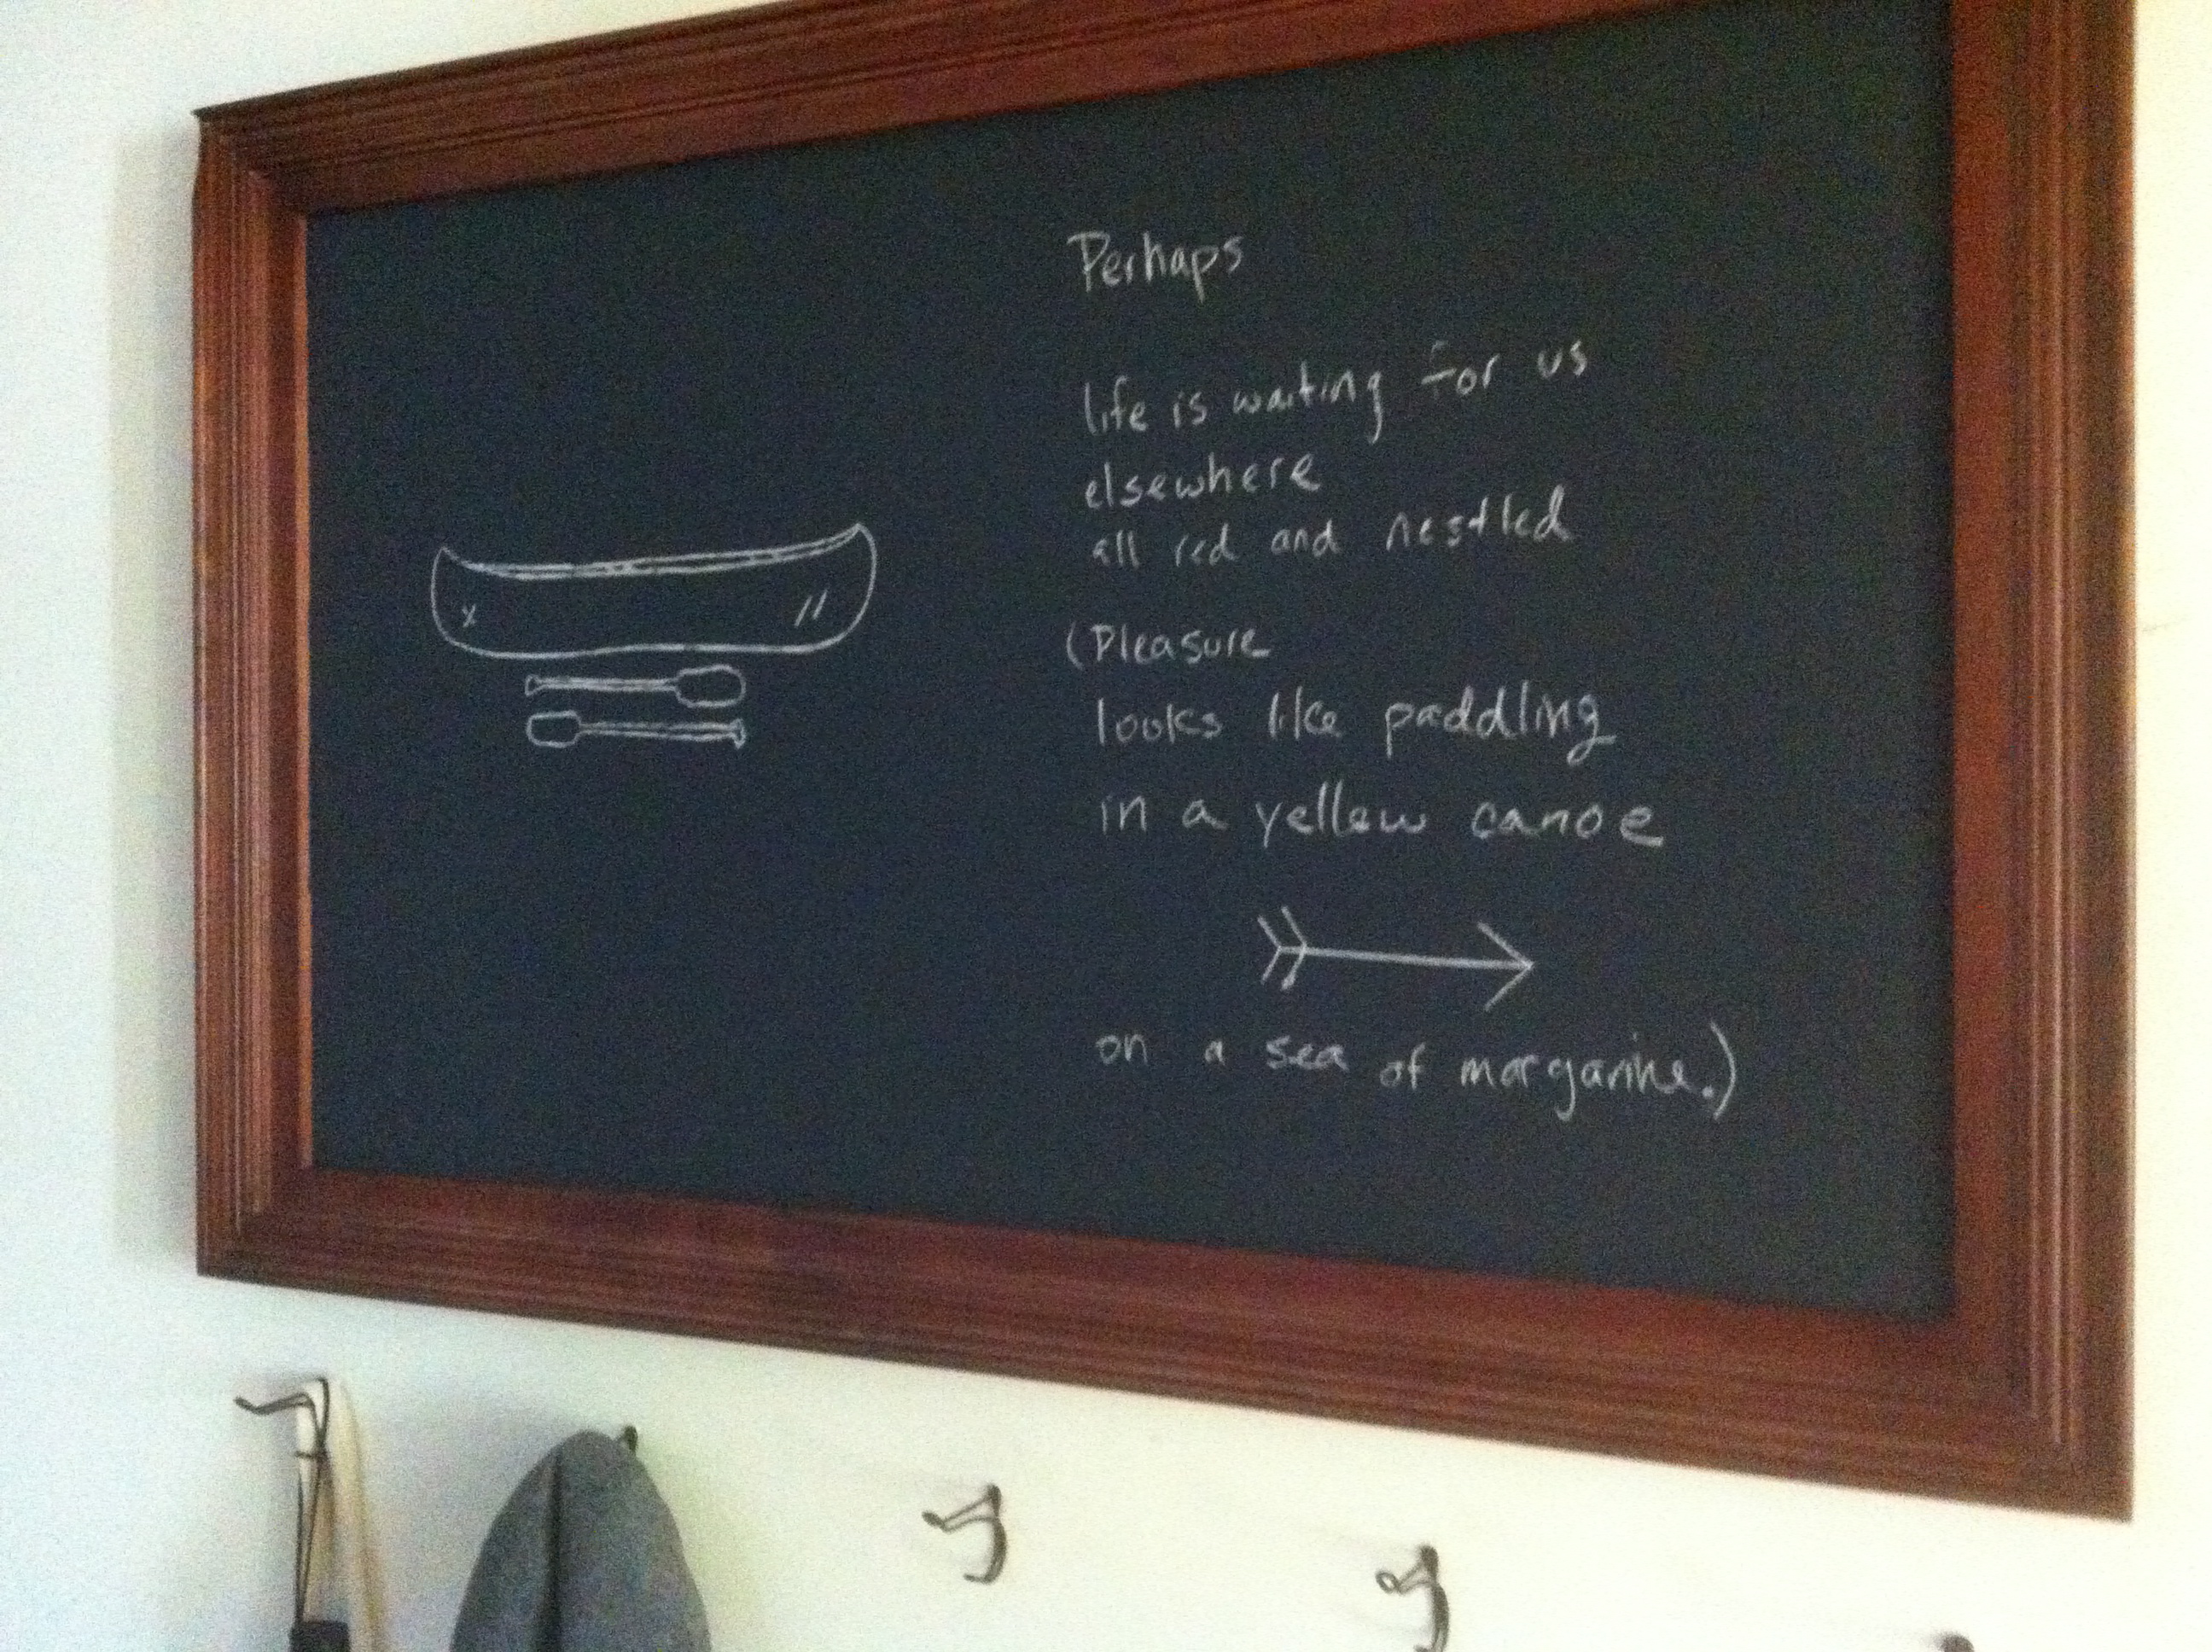 Perhaps
life is waiting for us
elsewhere
all red and nestled
(Pleasure
looks like paddling
in a yellow canoe
on a sea of margarine.)